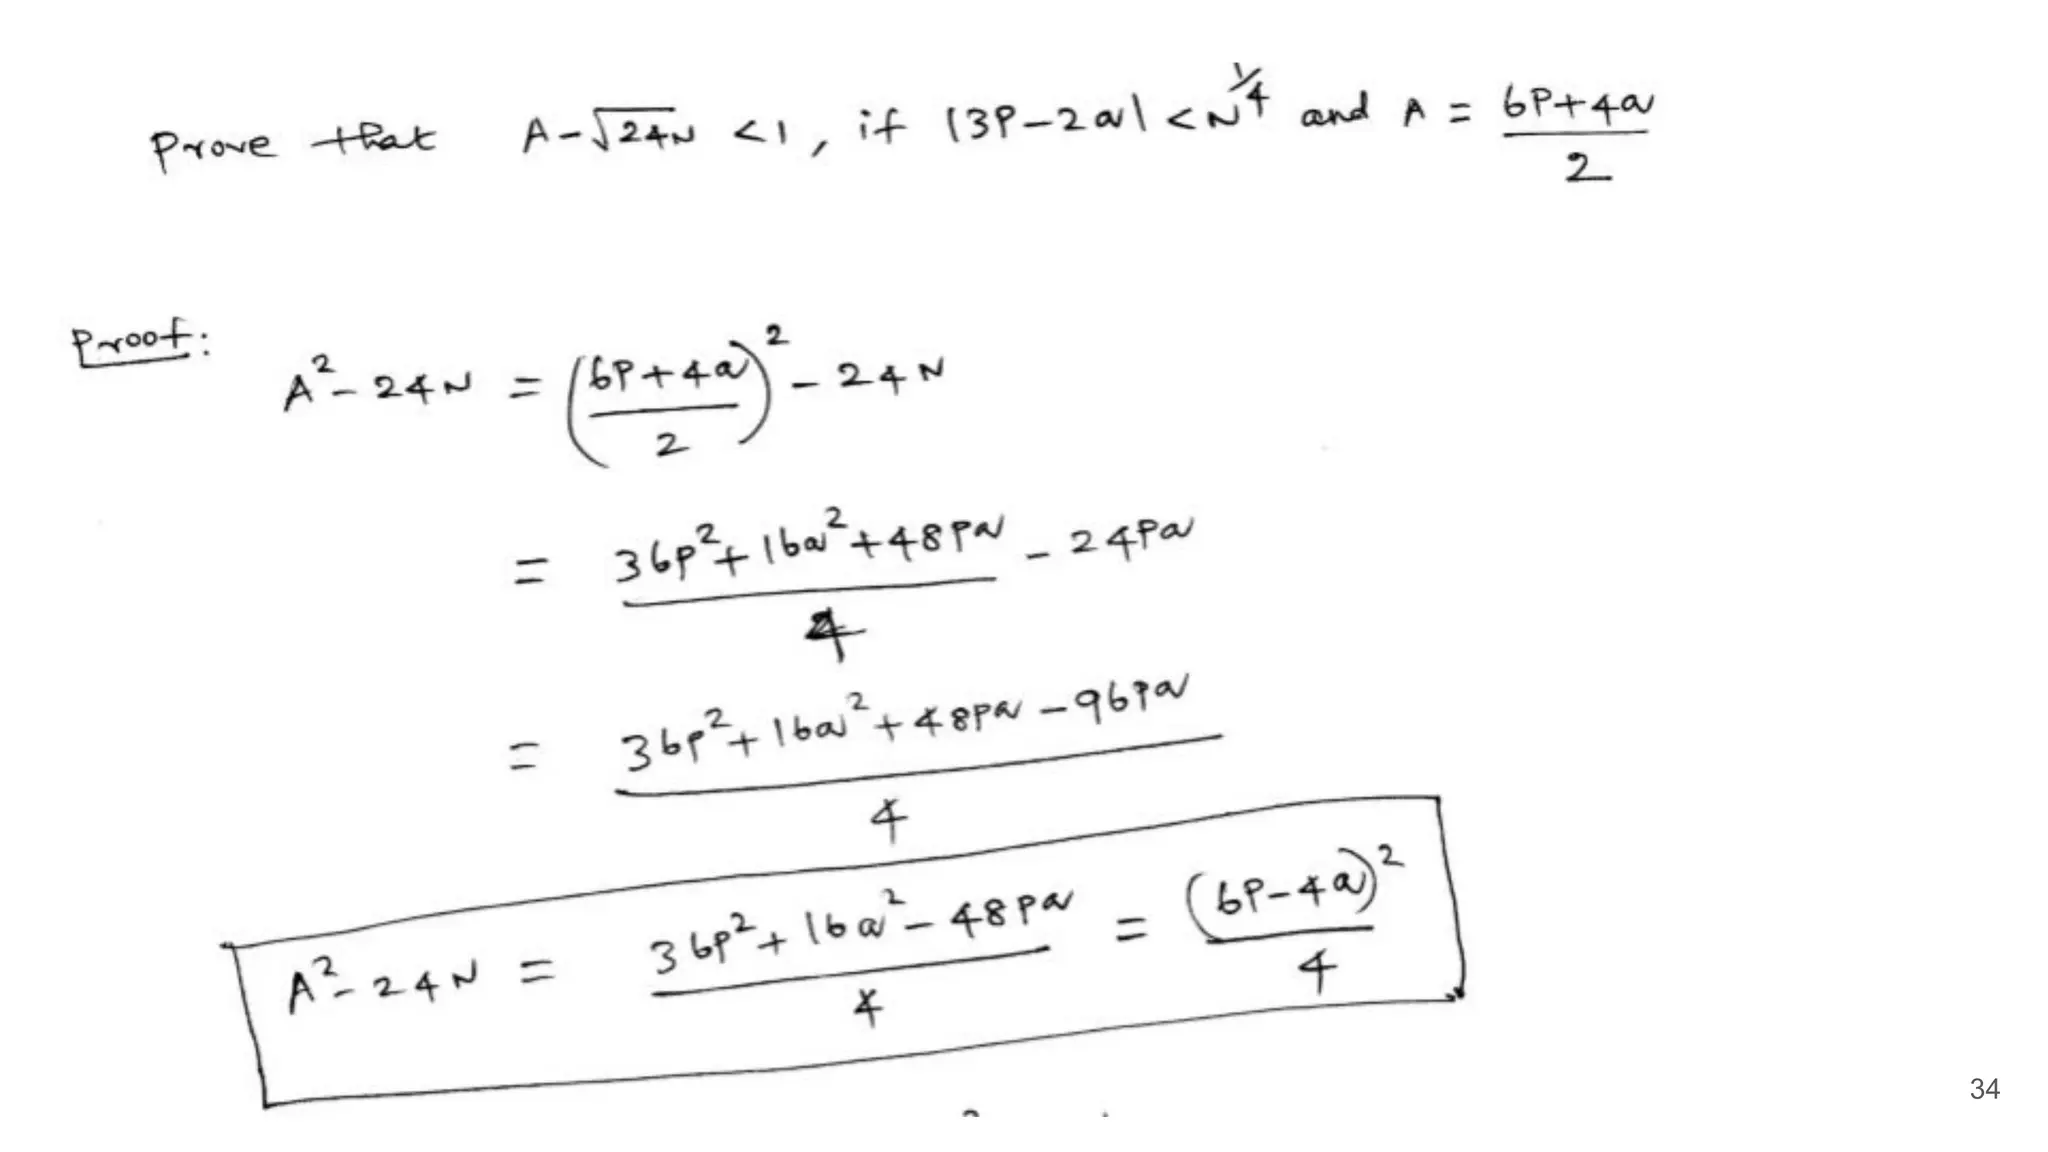 Prove that A-√24N <1, if |3P-2q| < N^1/4 and A = (6P+4q)/2
Proof:
A²-24N = ((6P+4q)/2)² - 24N
= (36p²+16q²+48pq)/4 - 24pq
= (36p²+16q²+48pq-96pq)/4
A²-24N = (36p²+16q²-48pq)/4 = (6P-4q)²/4
34